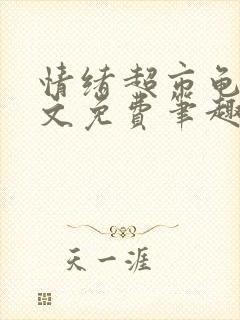 情绪超市龟
文免费笔趣
天一涯